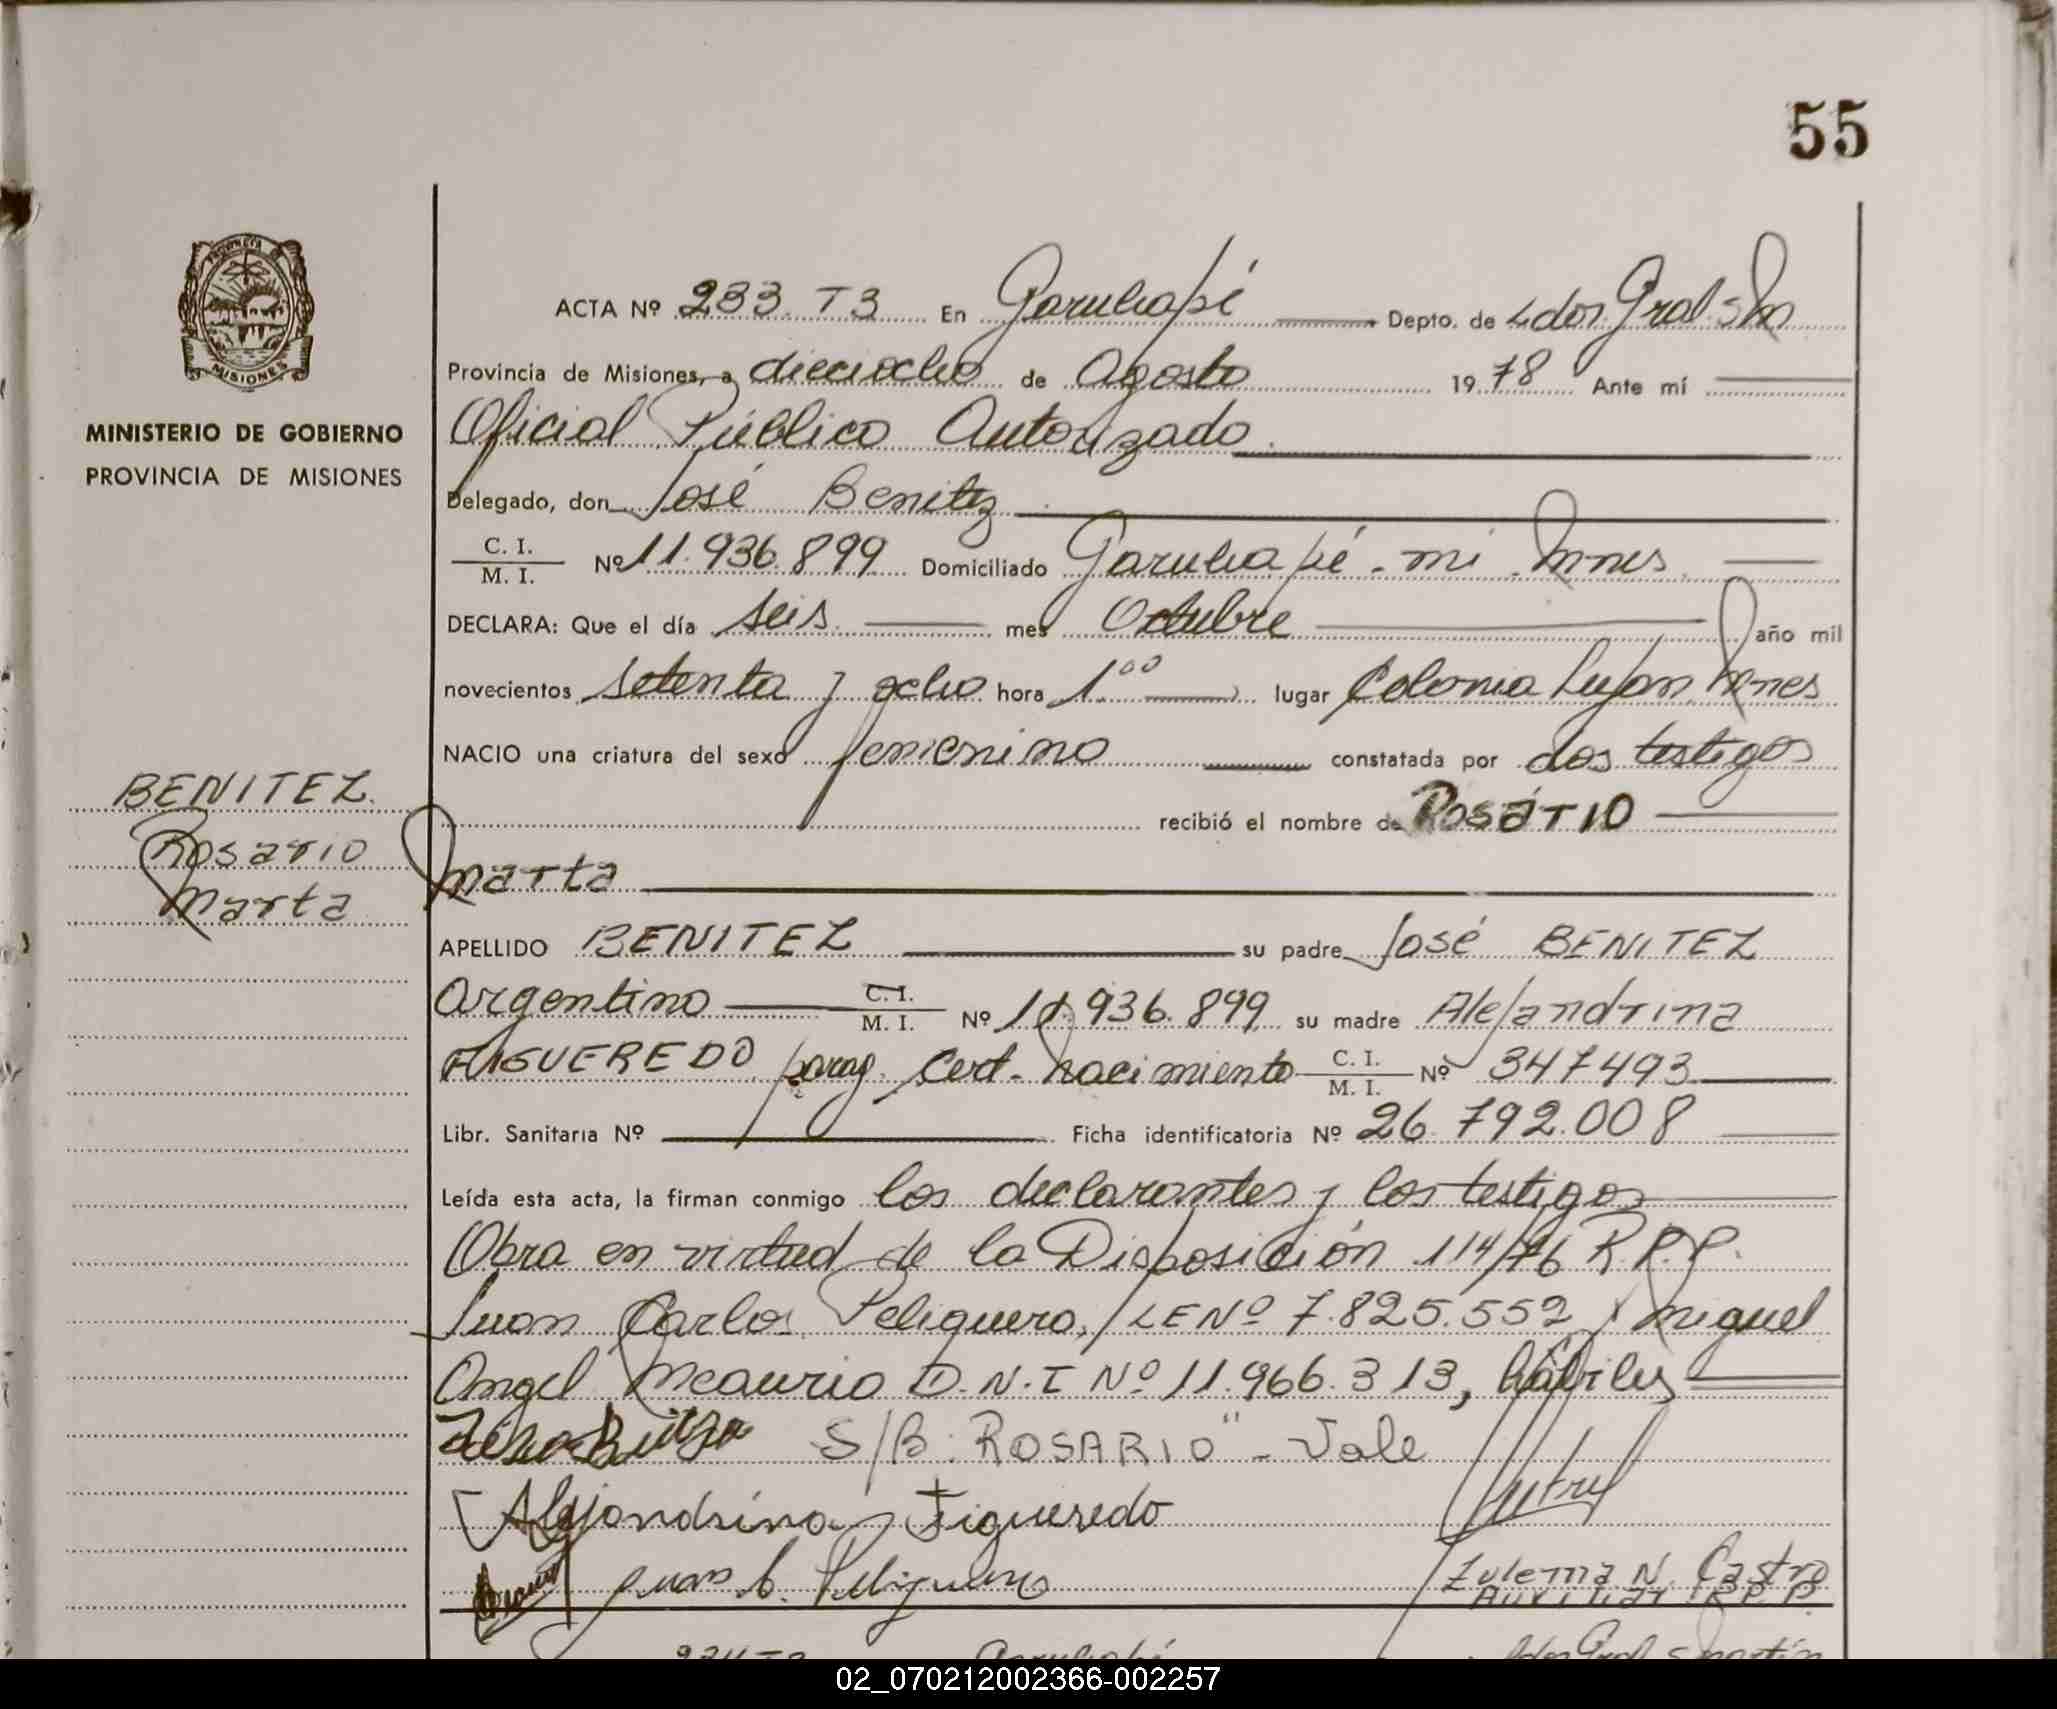 55
PROVINCIA DE MISIONES
MINISTERIO DE GOBIERNO
PROVINCIA DE MISIONES
ACTA Nº 233 T3 En Garuhapé Depto. de Ldor. Gral. S M
Provincia de Misiones, a dieciocho de Agosto 1978 Ante mí
Oficial Público Autorizado
Delegado, don José Benitez
C. I. / M. I. Nº 11.936.899 Domiciliado Garuhapé - mi - Mnes
DECLARA: Que el día seis mes Octubre año mil
novecientos setenta y ocho hora 1.00 lugar Colonia Lujan Mnes
NACIO una criatura del sexo femenino constatada por dos testigos
recibió el nombre de Rosario
Marta
BENITEZ
Rosario
Marta
APELLIDO BENITEZ su padre José BENITEZ
Argentino C. I. / M. I. Nº 11.936.899 su madre Alejandrina
FIGUEREDO parag. Cert. Nacimiento C. I. / M. I. Nº 347493
Libr. Sanitaria Nº Ficha identificatoria Nº 26.792.008
Leída esta acta, la firman conmigo los declarantes y los testigos
Obra en virtud de la Disposición 114/76 R.P.P.
Juan Carlos Peliquero, LE Nº 7.825.552 y Miguel
Angel Meaurio D.N.I Nº 11.966.313, hábiles
S/B: ROSARIO" - Vale
Alejandrina Figueredo
Juan C. Peliquero
Zulema N. Castro
Auxiliar R.P.P.
02_070212002366-002257